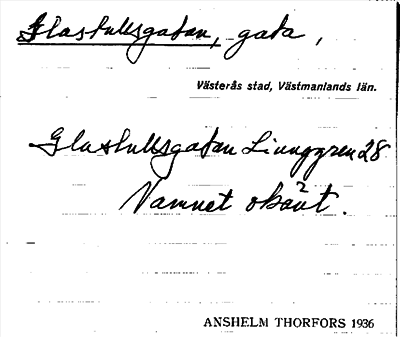 Glastullsgatan, gata,
Västerås stad, Västmanlands län.
Glastullsgatan Ljunggren 28
Namnet okänt.
ANSHELM THORFORS 1936